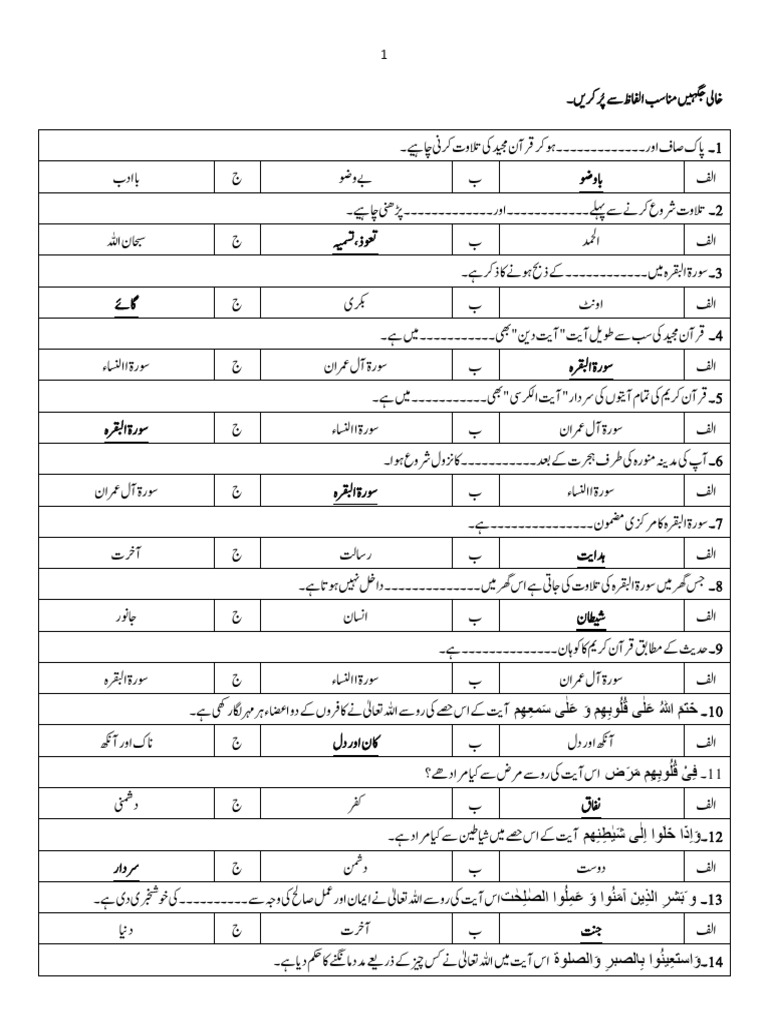 1
خالی جگہیں مناسب الفاظ سے پُر کریں۔
1۔ پاک صاف اور-------------ہو کر قرآن مجید کی تلاوت کرنی چاہیے۔
الف باوضو ب بے وضو ج باادب
2۔ تلاوت شروع کرنے سے پہلے------------اور-------------پڑھنی چاہیے۔
الف الحمد ب تعوذ، تسمیہ ج سبحان اللہ
3۔ سورۃ البقرہ میں------------کے ذبح ہونے کا ذکر ہے۔
الف اونٹ ب بکری ج گائے
4۔ قرآن مجید کی سب سے طویل آیت "آیت دین" بھی-----------میں ہے۔
الف سورۃ البقرہ ب سورۃ آل عمران ج سورۃ النساء
5۔ قرآن کریم کی تمام آیتوں کی سردار "آیت الکرسی" بھی-----------میں ہے۔
الف سورۃ آل عمران ب سورۃ النساء ج سورۃ البقرہ
6۔ آپ کی مدینہ منورہ کی طرف ہجرت کے بعد-----------کا نزول شروع ہوا۔
الف سورۃ النساء ب سورۃ البقرہ ج سورۃ آل عمران
7۔ سورۃ البقرہ کا مرکزی مضمون---------------ہے۔
الف ہدایت ب رسالت ج آخرت
8۔ جس گھر میں سورۃ البقرہ کی تلاوت کی جاتی ہے اس گھر میں--------------داخل نہیں ہوتا ہے۔
الف شیطان ب انسان ج جانور
9۔ حدیث کے مطابق قرآن کریم کا کوہان--------------ہے۔
الف سورۃ آل عمران ب سورۃ النساء ج سورۃ البقرہ
10۔ خَتَمَ اللّٰهُ عَلٰى قُلُوبِهِم وَ عَلٰى سَمعِهِم آیت کے اس حصے کی روسے اللہ تعالیٰ نے کافروں کے دو اعضاء ہر مہر لگار کھی ہے۔
الف آنکھ اور دل ب کان اور دل ج ناک اور آنکھ
11۔ فِىْ قُلُوبِهِم مَرَض اس آیت کی روسے مرض سے کیا مراد ھے؟
الف نفاق ب کفر ج دشمنی
12۔ وَاِذَا خَلَوا اِلٰى شَيٰطِينِهِم آیت کے اس حصے میں شیاطین سے کیا مراد ہے۔
الف دوست ب دشمن ج سردار
13۔ و َبَشِّرِ الَّذِينَ اٰمَنُوا وَ عَمِلُوا الصّٰلِحٰتِ اس آیت کی روسے اللہ تعالیٰ نے ایمان اور عمل صالح کی وجہ سے----------کی خوشخبری دی ہے۔
الف جنت ب آخرت ج دنیا
14۔ وَاستَعِينُوا بِالصَبرِ وَالصلوة اس آیت میں اللہ تعالیٰ نے کس چیز کے ذریعے مدد مانگنے کا حکم دیا ہے۔